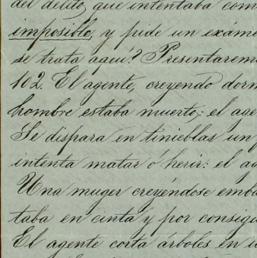 del delito, que intentaba com
imposible, y pide un exám
se trata aquí? Presentarem
162. El agente, creyendo dorm
hombre estaba muerto; el age
Se dispara en tinieblas un
intenta matar o herir: el ag
Una muger creyéndose emba
taba en cinta y por consigu
El agente corta árboles en u